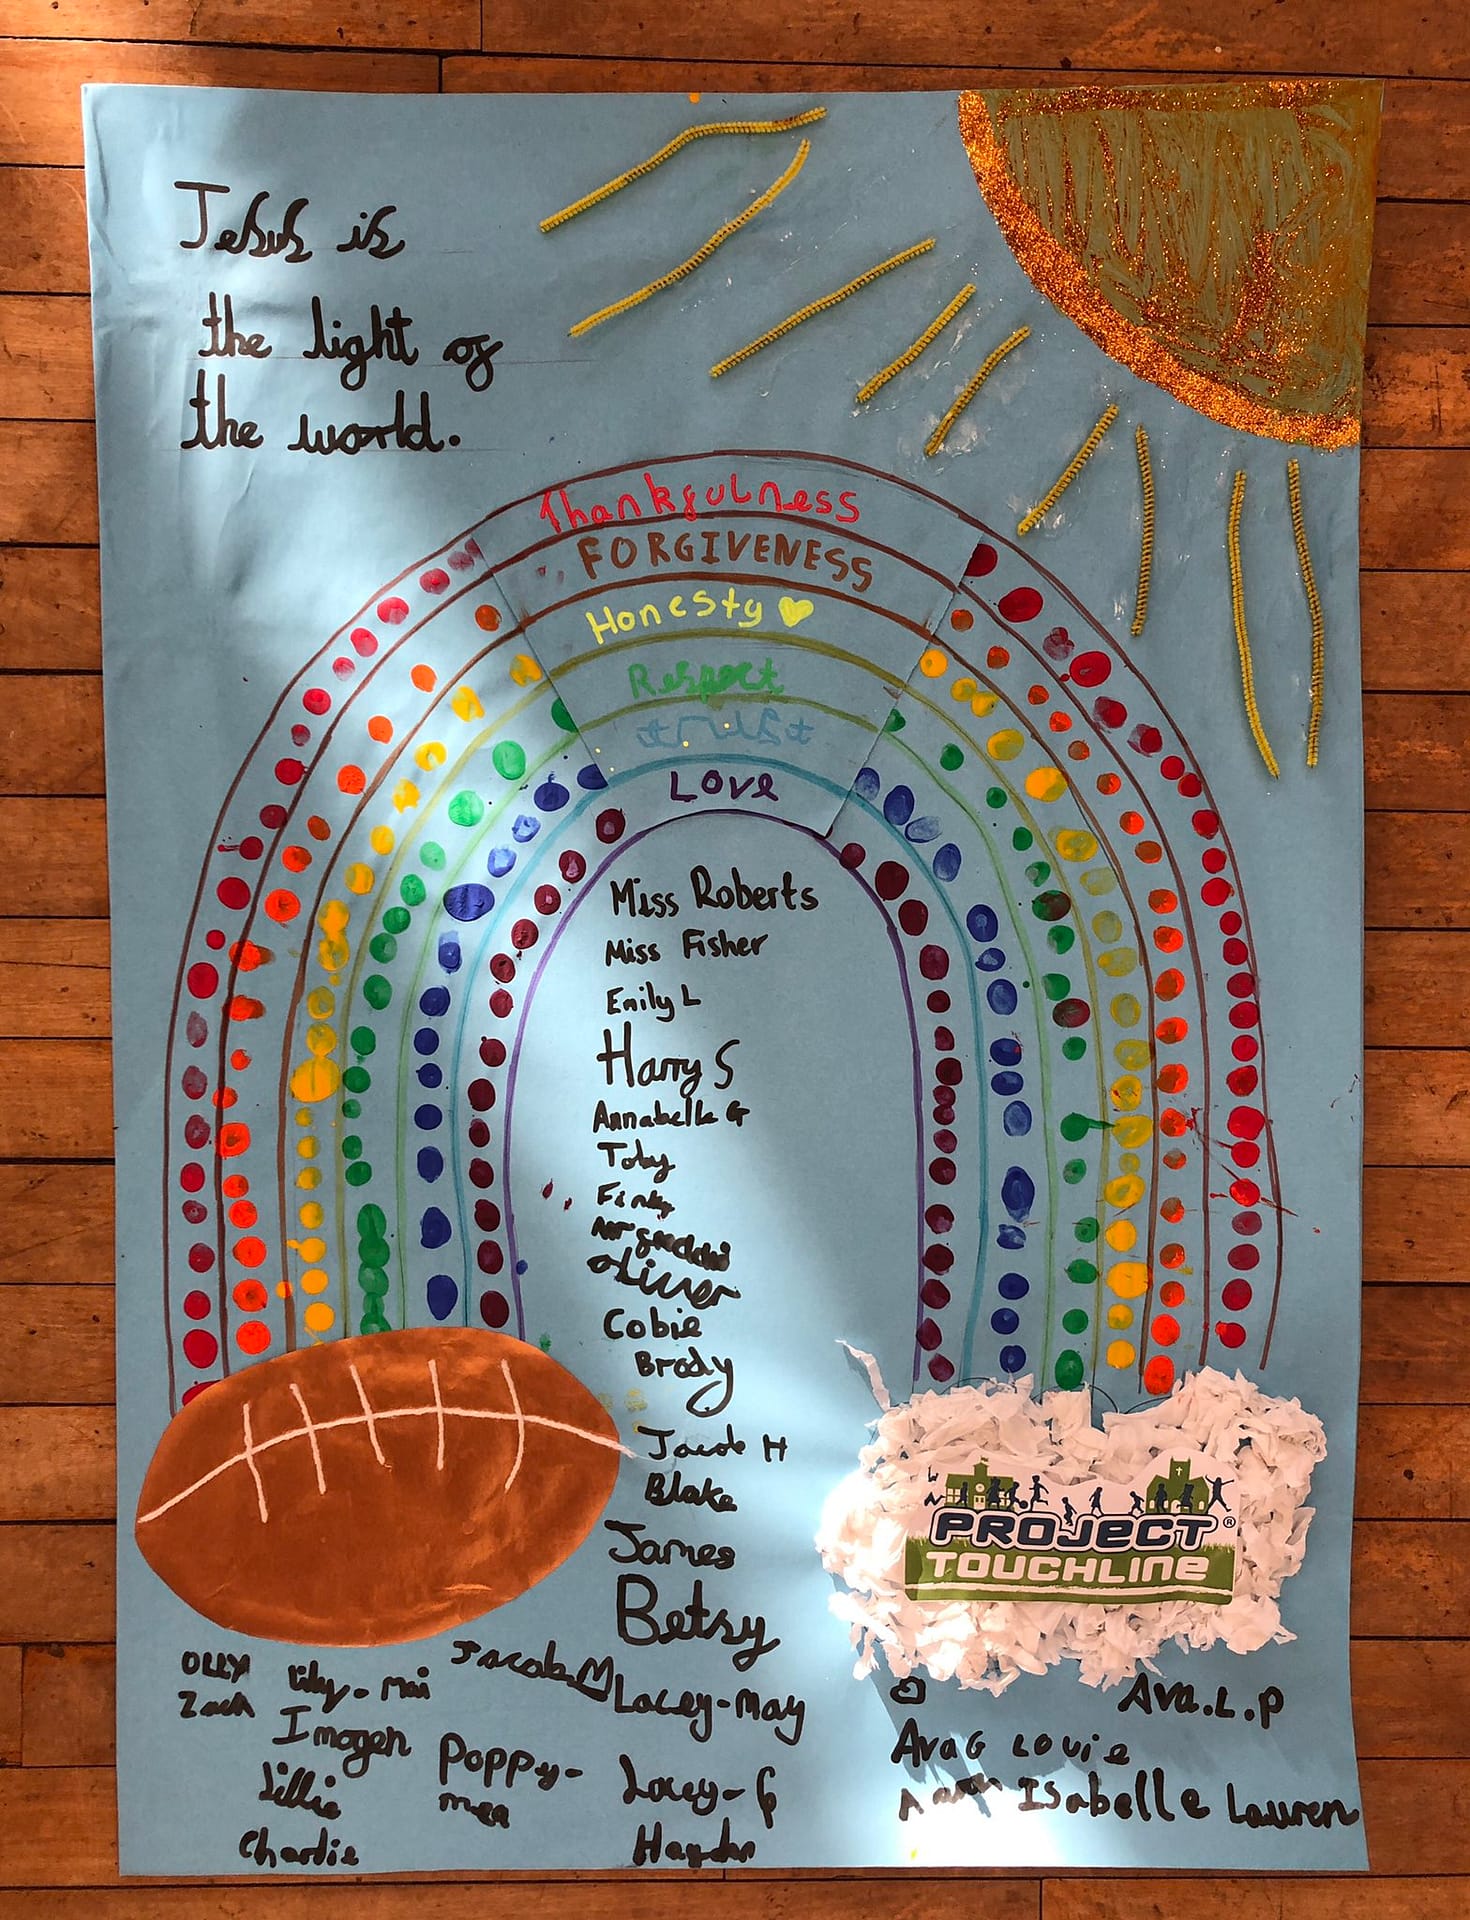 Jesus is
the light of
the world.
Thankfulness
FORGIVENESS
Honesty
Respect
trust
Love
Miss Roberts
Miss Fisher
Emily L
Harry S
Annabelle G
Toby
Finley
Oliver
Cobie
Brody
Jacob H
Blake
James
Betsy
PROJECT®
TOUCHLINE
OLLY
Zach
Lily-Mai
Jacob M
Lacey-May
Imogen
Poppy-
mea
Lillie
Lacey-G
Charlie
Hayden
Ava.L.P
Ava G Louie
Isabelle Lauren